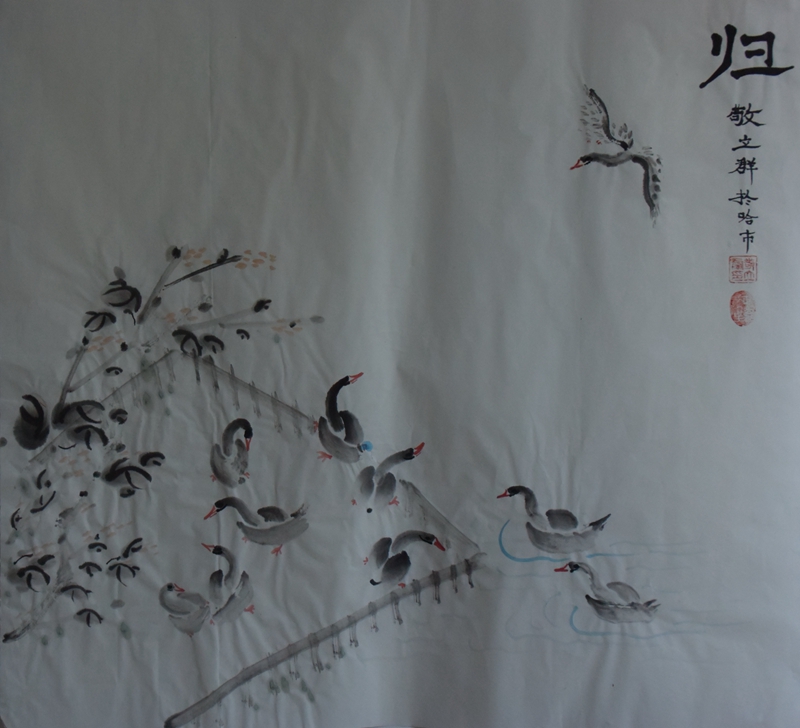 归
敬文群於哈市